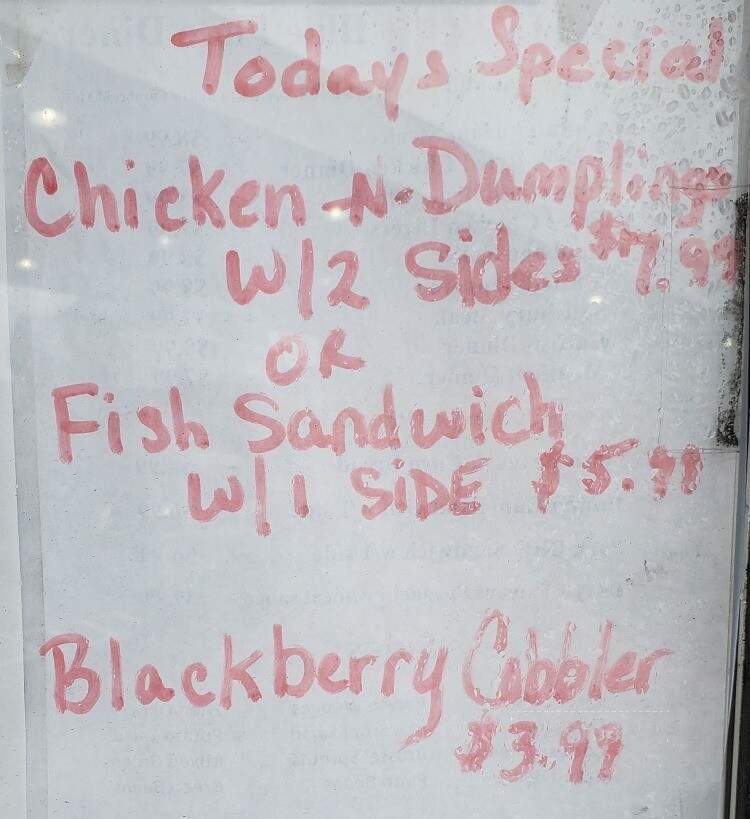 Todays Special
Chicken -N- Dumplings
W/2 Sides $7.99
OR
Fish Sandwich
W/1 SIDE $5.99
Blackberry Cobbler
$3.99